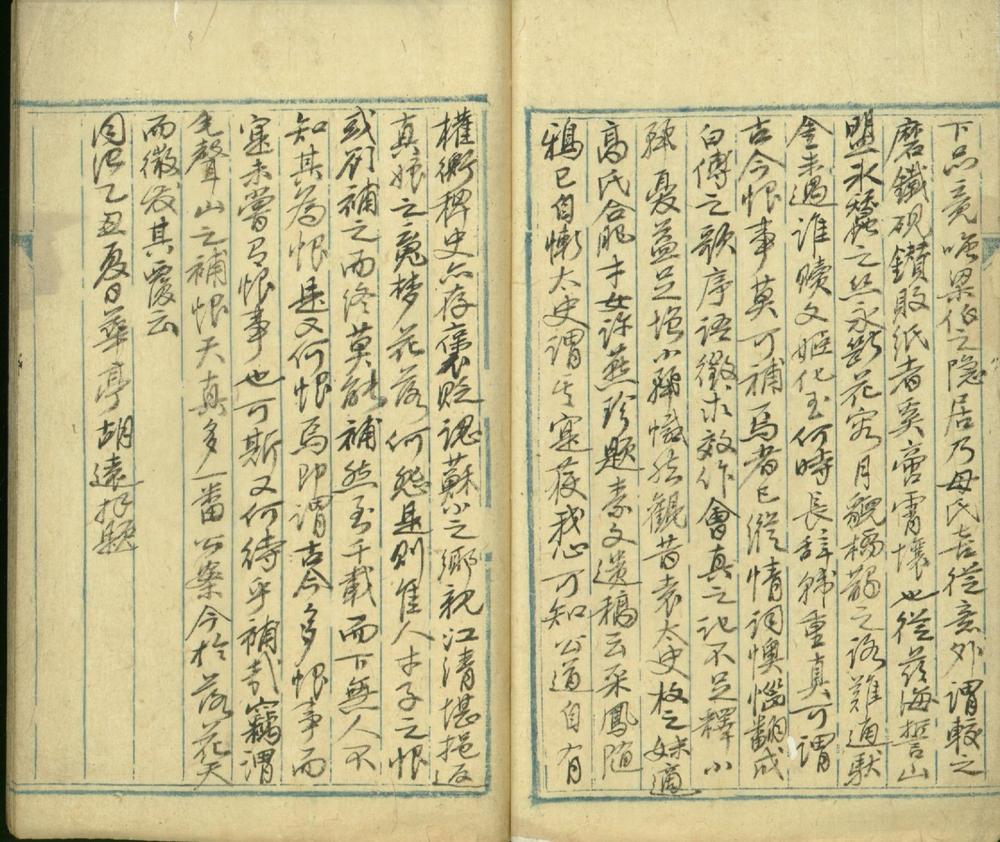 下品竟嗤梁作之隐居乃母氏喜從意外謂較之
磨鐵硯鑽敗紙者奚啻霄壤也從茲海誓山
盟氷蠶之丝永斷花容月貌橋鵲之路難通馱
金未遇谁贖文姬化玉何時長辞韩重真可謂
古今恨事莫可補焉者已縱情詞懊惱翻成
白傅之歌序語徵求效作會真之记不足釋小
輝憂益足增小輝慽然觀昔袁太史枚之妹適
高氏合肥才女许燕珍题素文遗稿云采鳳随
鴉已自慚太史謂其寔荻我心可知公道自有
權衡稗史亦存褒貶認蘇小之鄉親江清堪挹返
真娘之䰟梦花落何怨是则佳人才子之恨
或顾補之而终莫能補然至千載而下無人不
知其為恨是又何恨焉即謂古今多恨事而
寔未嘗有恨事也可斯又何待乎補哉竊謂
毛聲山之補恨天真多一番公案今於落花天
而微发其覆云
同治乙丑夏日華亭胡遠拜题